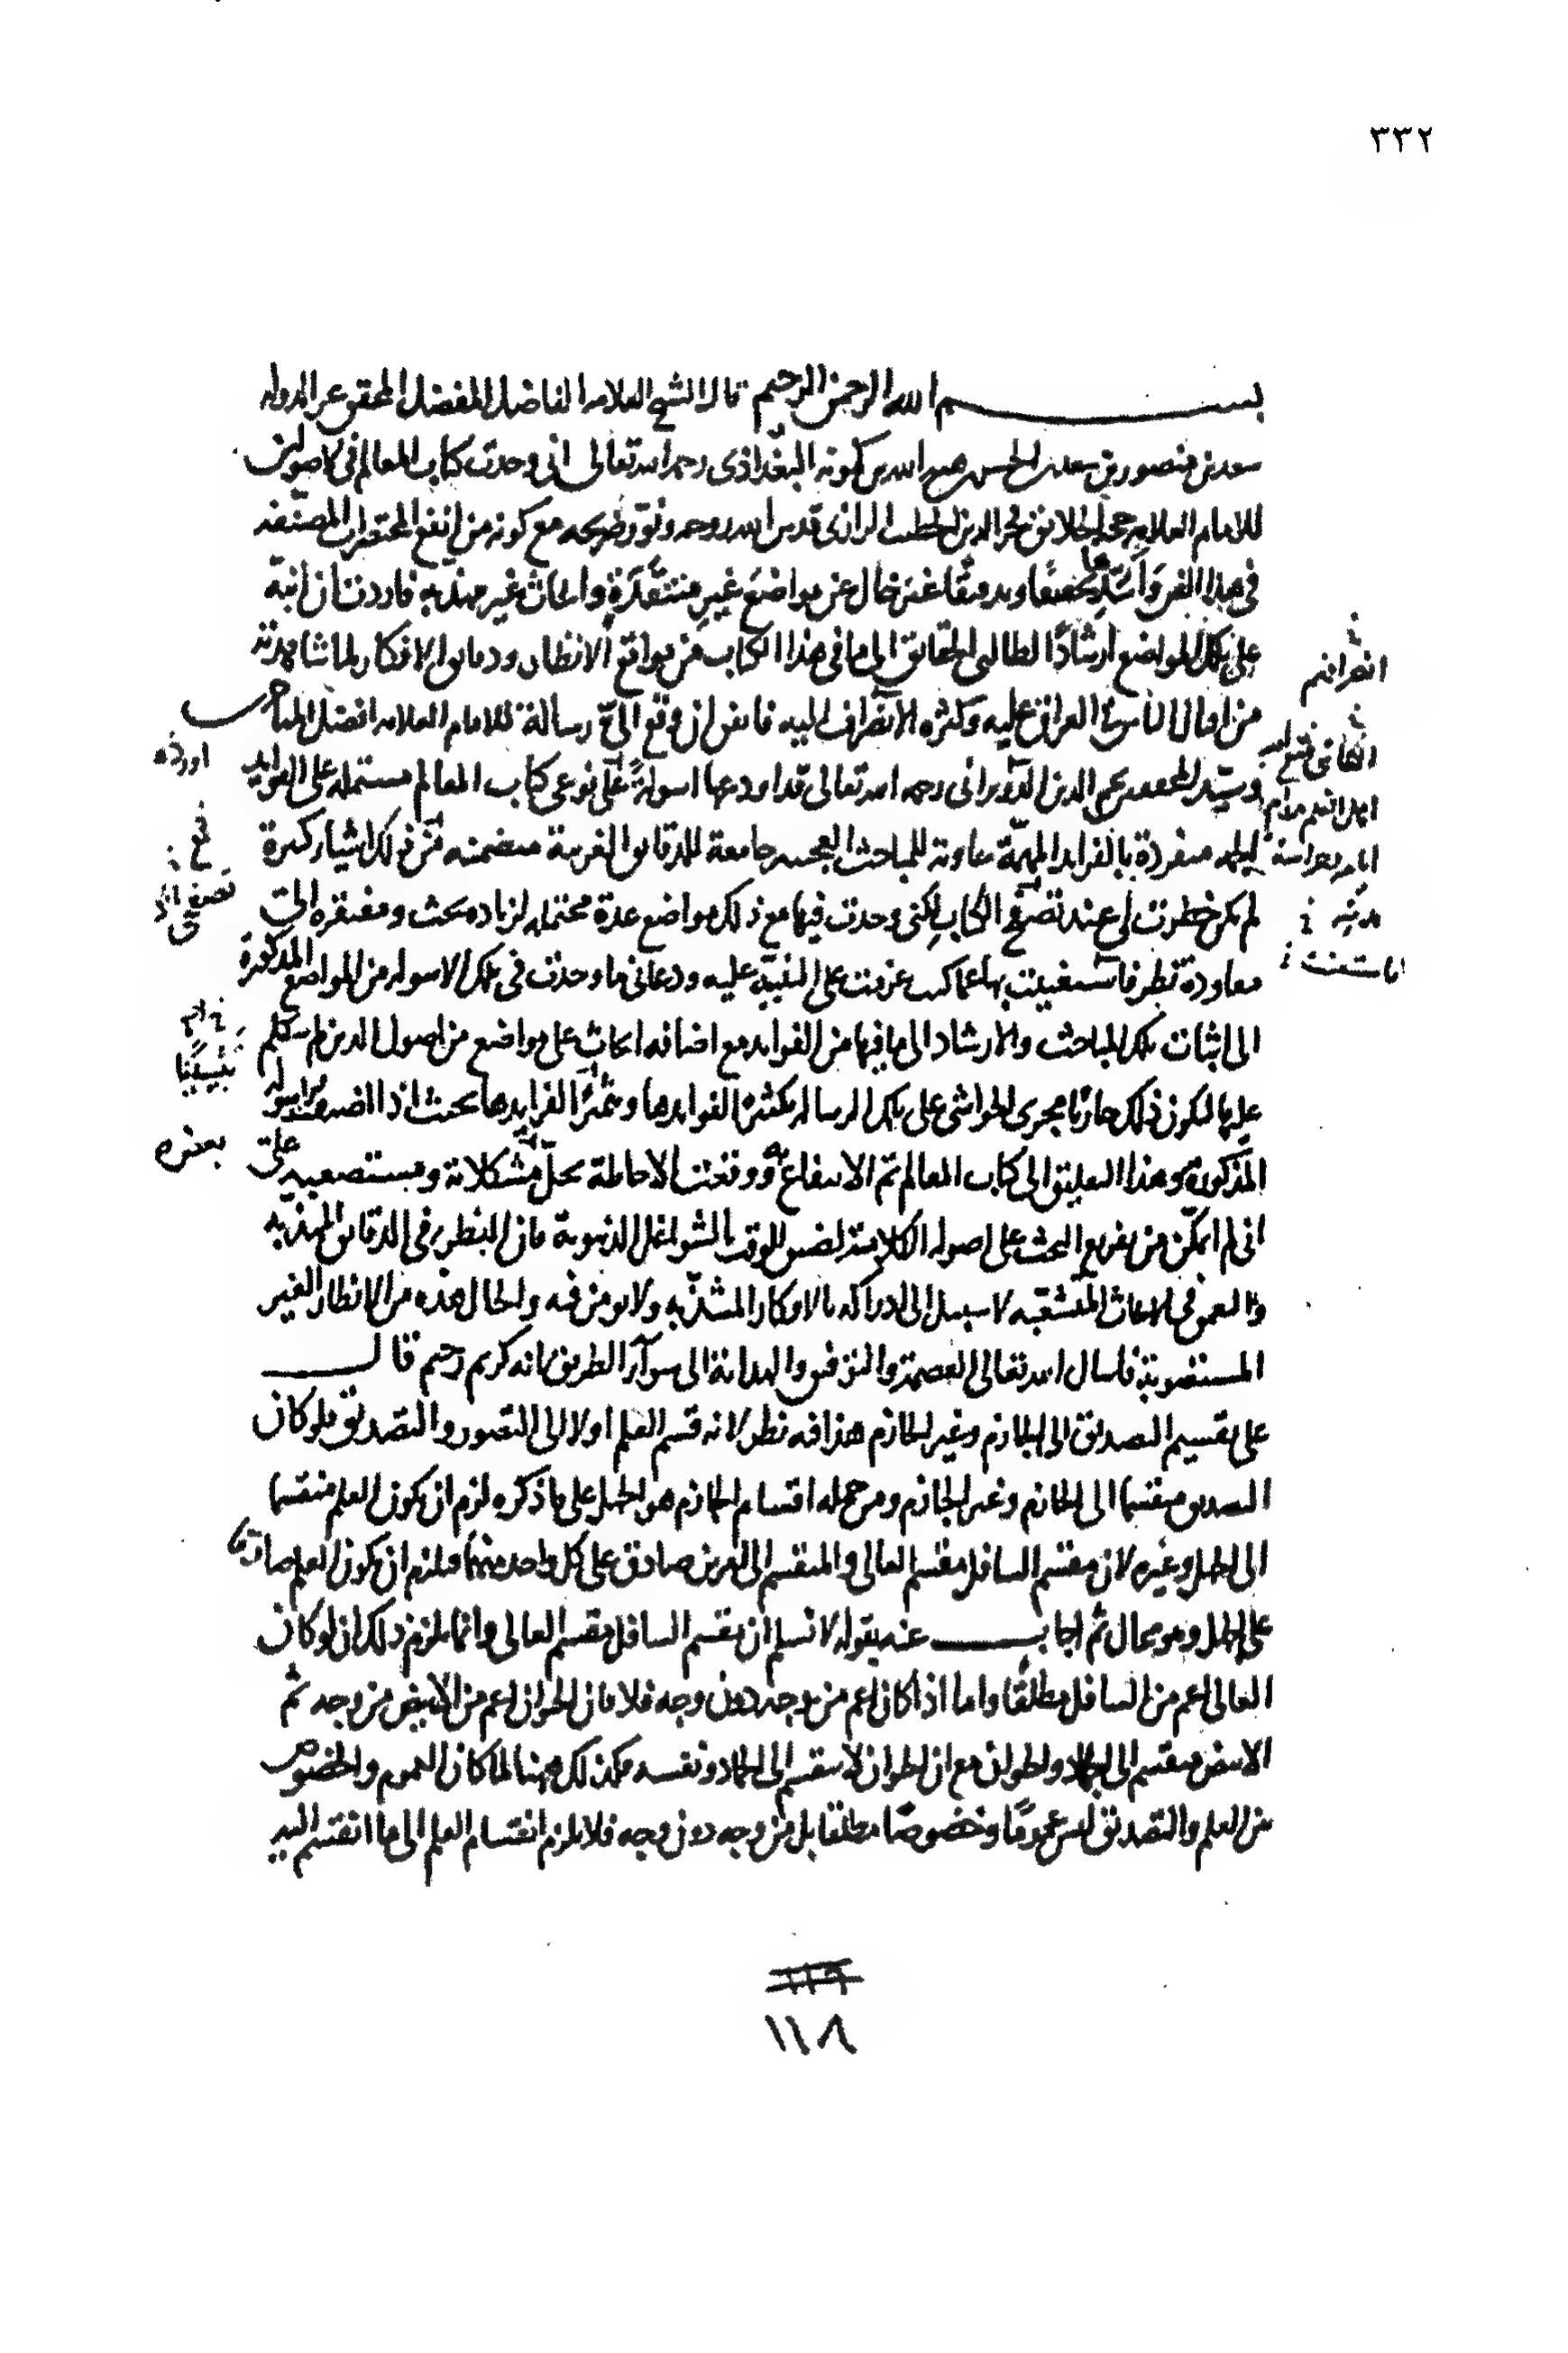 ٣٣٢
بسم الله الرحمن الرحيم قال الشيخ العلامه الفاضل المفضل المحقق عز الدوله
سعد بن منصور بن سعد بن الحسن هبه الله بن كمونه البغدادى رحمه الله تعالى انى وجدت كتاب المعالم فى الاصولين
للامام العلامه حجه الخلائق فخر الدين بن الخطيب الرازى قدس الله روحه ونور ضريحه مع كونه من انفع المختصرات المصنفه
فى هذا الفن واسدها تحقيقا وتدقيقا غير خال عن مواضع غير منتقدة وابحاث غير مهذبه فاردت ان انبه
على تلك المواضع ارشادًا لطالبى الحقائق الى ما فى هذا الكتاب من مواقع الانظار ودقايق الافكار لما شاهدته
من اقبال الناس فى العراق عليه وكثره الانصراف اليه فاتفق ان وقع الىّ رسالة للامام العلامه افضل المتاخرين
وسيد المحققين نجم الدين الدويرانى رحمه الله تعالى قد اودعها اسولةً على نوعى كتاب المعالم مشتمله على الفوايد
الجليله منفردة بالفرايد المهمّة حاويه للمباحث العجيبه جامعة للدقايق الغريبة متضمنه من ذلك اشياء كثيرة
لم يكن خطرت لى عند تصفح الكتاب لكنى وجدت فيها مع ذلك مواضع عدة محتمله لزياده بحث ومفتقره الى
معاودة نظر فاستغنيت بها عما كنت عزمت على التنبيه عليه ودعانى ما وجدت فى تلك الاسوله من المواضع المذكورة
الى اثبات تلك المباحث والارشاد الى ما فيها من الفوايد مع اضافه ابحاث على مواضع من اصول الدين لم يتكلم
عليها ليكون ذلك جاريًا مجرى الحواشى على تلك الرساله مكثرًا لفوايدها ومثمرًا لفرايدها بحيث اذا اضيفت اسوله
المذكورة وهذا التعليق الى كتاب المعالم تم الانتفاع به ووقعت الاحاطة بحل مشكلاته ومستصعبه على
انى لم اتمكن من تفريع البحث على اصوله الكلامية لضيق الوقت بالشواغل الدنيوية فان النظر فى الدقائق المهذبه
والتعمق فى الابحاث المتشعبه لا سبيل الى ادراكه بالافكار المشذبه ولا يومن فيه والحال هذه من الانظار الغير
المستصوبة فاسال الله تعالى العصمة والتوفيق والهداية الى سوآء الطريق انه كريم رحيم قال
على تقسيم التصديق الى الجازم وغير الجازم هذا فيه نظر لانه قسم العلم اولا الى التصور والتصديق فلو كان
التصديق منقسما الى الجازم وغير الجازم ومن جمله اقسام الجازم هو الجهل على ما ذكره لزم ان يكون العلم منقسما
الى الجهل وغيره لان مقسم السافل مقسم العالى والمنقسم الى امرين صادق على كل واحد منهما فيلزم ان يكون العلم صادقا
على الجهل وهو محال ثم اجاب عنه بقوله لا نسلم ان مقسم السافل مقسم العالى وانما يلزم ذلك ان لو كان
العالى اعم من السافل مطلقًا واما اذا كان اعم من وجه دون وجه فلا فان الحيوان اعم من الابيض من وجه ثم
الابيض منقسم الى الجماد والحيوان مع ان الحيوان لا ينقسم الى الجماد ونفسه فكذلك ههنا لما كان العموم والخصوص
بين العلم والتصديق ليس عمومًا وخصوصًا مطلقا بل من وجه دون وجه فلا يلزم انقسام العلم الى ما انقسم اليه
١١٩
١١٨